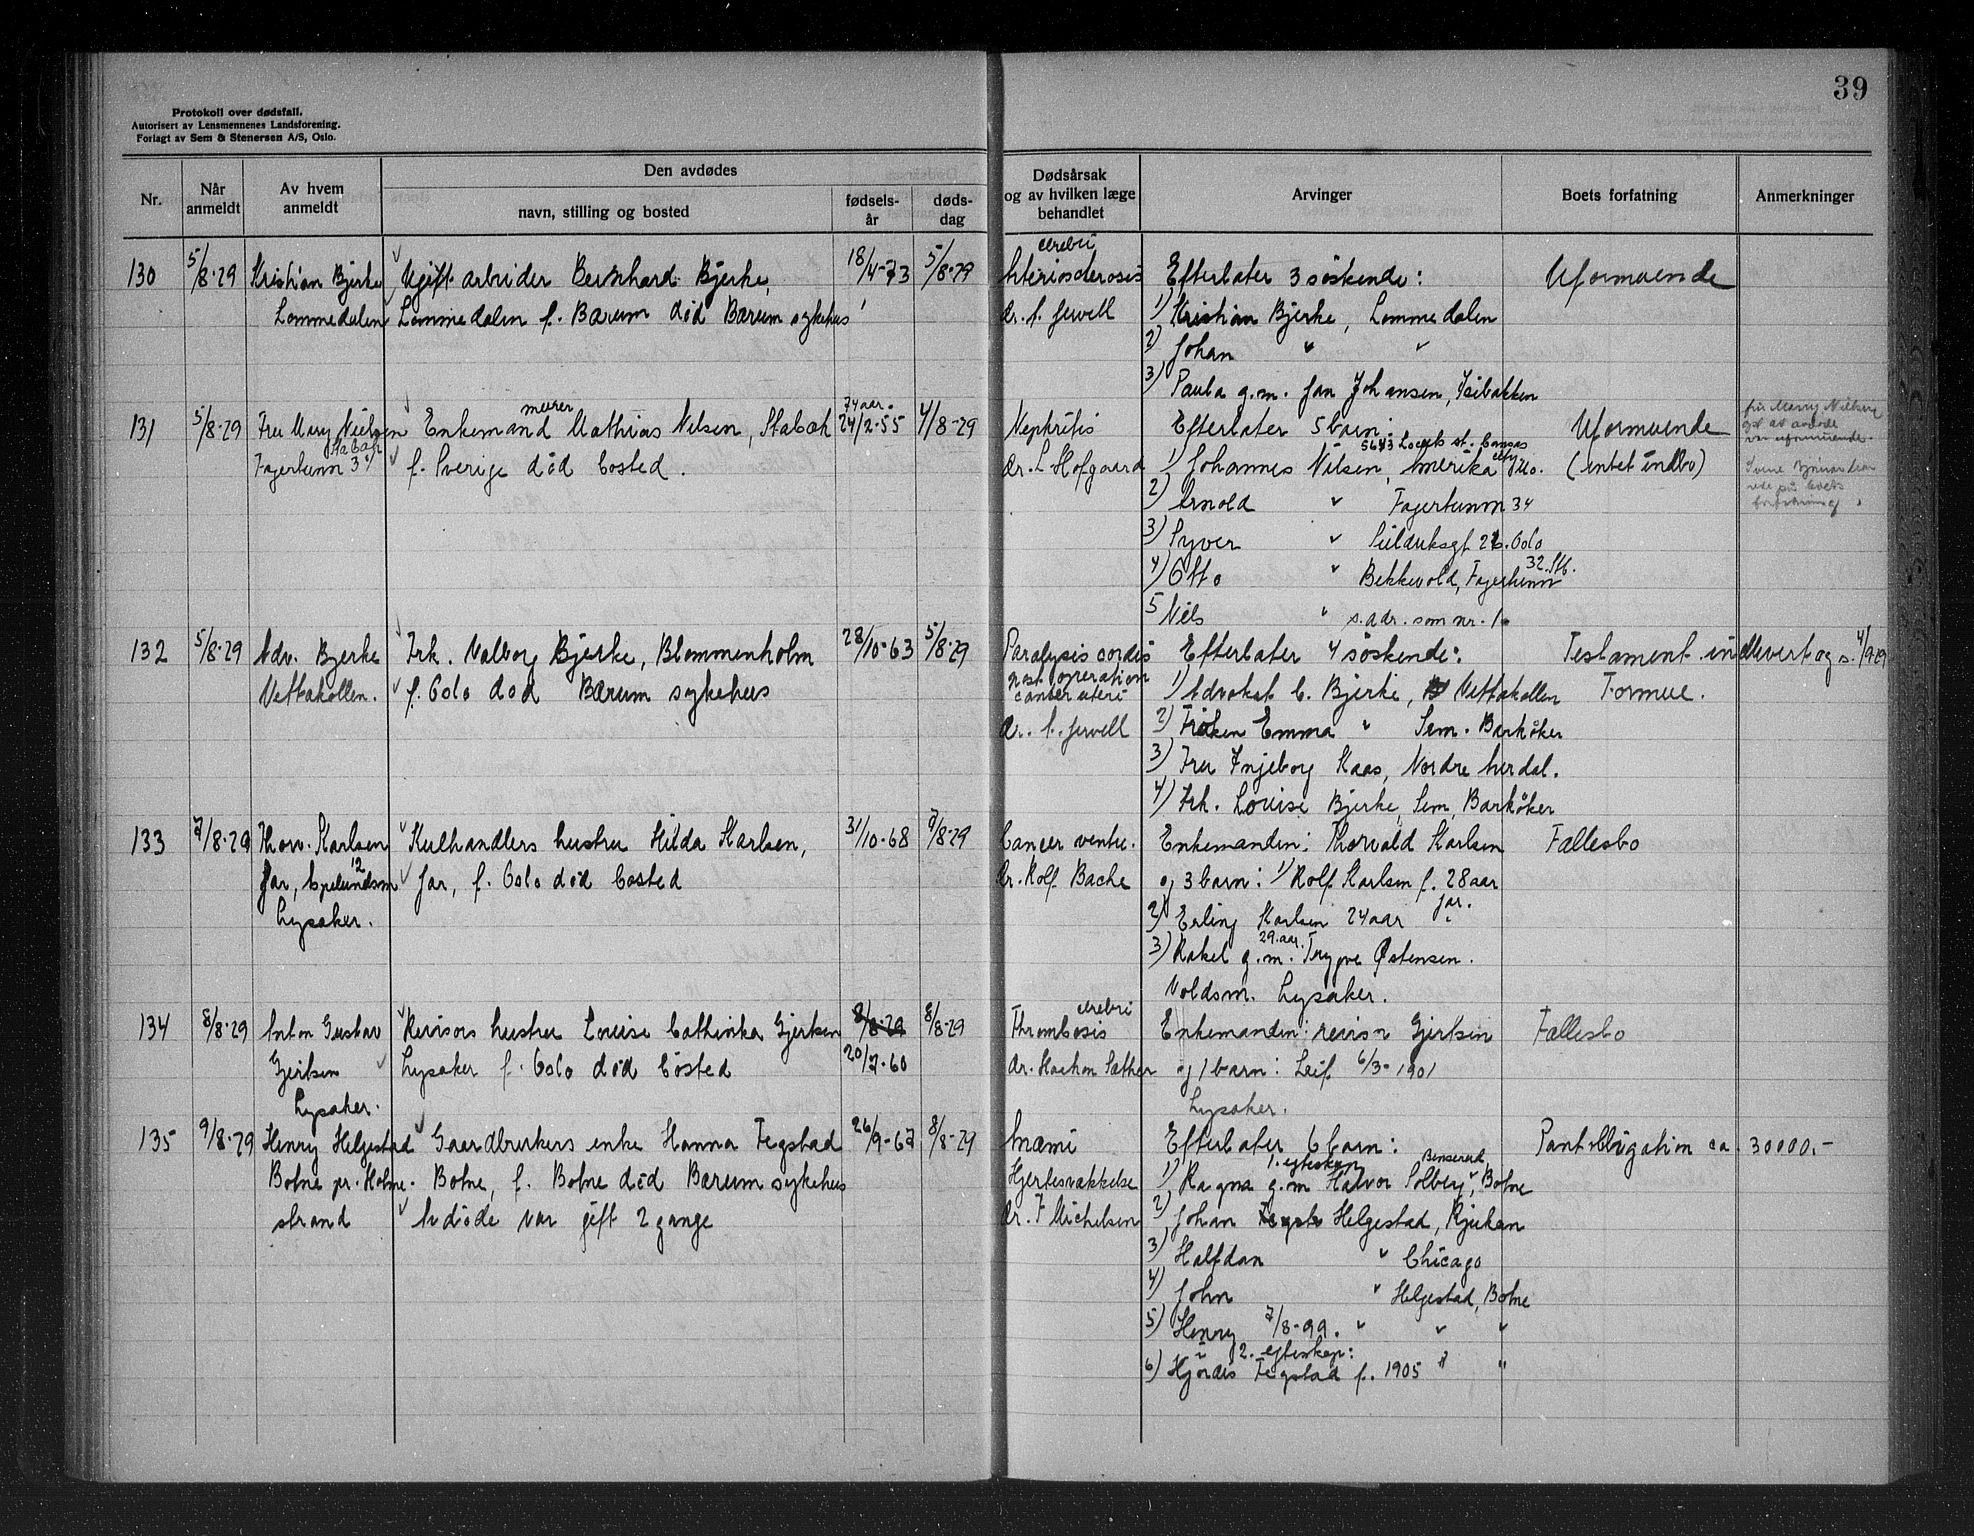 39
Protokoll over dødsfall.
Autorisert av Lensmennenes Landsforening.
Forlagt av Sem & Stenersen A/S, Oslo.
Nr.
Når anmeldt
Av hvem anmeldt
Den avdødes
navn, stilling og bosted
fødsels-år
døds-dag
Dødsårsak og av hvilken læge behandlet
Arvinger
Boets forfatning
Anmerkninger
130 5/8-29 Kristian Bjerke Ugift arbeider Bernhard Bjerke, 18/4-73 5/8-29
Lommedalen Lommedalen f. Bærum død Bærum sykehus
cerebri
Arteriosclerosis
dr. A. Jervell
Efterlater 3 søskende:
1) Kristian Bjerke, Lommedalen
2) Johan " "
3) Paula g.m. Jan Johansen, Isibakken
Uformuende
131 5/8-29 Fru Mary Nielsen Enkemand murer Mathias Nilsen, Stabæk 74 aar. 24/2-55 4/8-29
Stabæk
Fagertunn f. Sverige død bosted.
Nephritis
dr. L Hofgaard
Efterlater 5 barn:
5643 Locuts st. Cansas city
1) Johannes Nilsen, Amerika Mo.
2) Arnold " Fagertunn 34
3) Syver " Seilduksgt Oslo
4) Otto " Bekkevold, Fagertunn 32. Stb.
5 Nils " s. adr. som nr. 1.
Uformuende
(intet indbo)
fru Marry Nielsen
at avdøde
var uformuende.
132 5/8-29 Adv. Bjerke Frk. Valborg Bjerke, Blommenholm 28/10-63 5/8-29
Vettakollen. f. Oslo død Bærum sykehus
Paralysis cordis
post operation
cancer uteri
dr. A. Jervell
Efterlater 4 søskende:
1) Advokat C. Bjerke, Vettakollen
2) Frøken Emma " Sem. Barkåker
3) Fru Ingeborg Kaas, Nordre Aurdal.
4) Frk. Louise Bjerke, Sem, Barkåker
Testament indlevert og s. 4/9-29
Formue.
133 7/8-29 Thorv. Karlsen Kulhandlers hustru Hilda Karlsen, 31/10-68 7/8-29
Jar, Espelundsvn 12 Jar, f. Oslo død bosted
Lysaker.
Cancer ventr.
dr. Rolf Bache
Enkemanden: Thorvald Karlsen
og 3 barn: 1) Rolf Karlsen f. 28 aar
2) Erling Karlsen 24 aar Jar.
3) Rakel 29. aar. g.m. Trygve Østensen.
Voldsm. Lysaker.
Fællesbo
134 8/8-29 Anton Gustav Revisors hustru Louise Cathinka Gjertsen 8/8-29 8/8-29
Gjertsen Lysaker f. Oslo død bosted 20/7-60
Lysaker.
cerebri
Thrombosis
dr. Haakon Sæther
Enkemanden: revisor Gjertsen
og 1 barn: Leif 6/3-1901
Lysaker.
Fællesbo
135 9/8-29 Henry Helgestad Gaardbrukers enke Hanna Fegstad 26/9-67 8/8-29
Botne pr. Holme- Botne, f. Botne død Bærum sykehus
strand Avdøde var gift 2 gange
Anæmi
Hjertesvakkelse
dr. F Michelsen
Efterlater 6 barn:
1. egteskap
1) Ragna g.m Halvor Solberg, Botne
2) Johan Helgestad, Rjukan
3) Halfdan " Chicago
4) John " Helgestad, Botne
5) Henry 7/8-99. " " "
i 2. egteskap:
6) Hjørdis Fegstad f. 1905 " "
Pantobligation ca. 30000.-